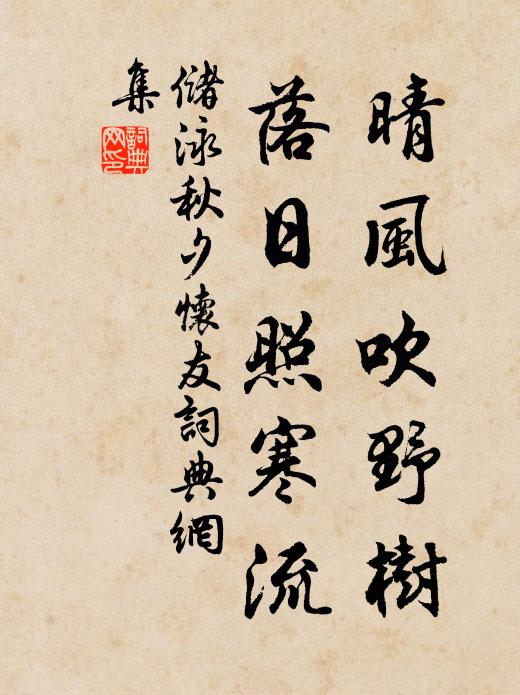 晴風吹野樹
落日照寒流
儲泳秋夕懷友詞典網
集
詞典
网印